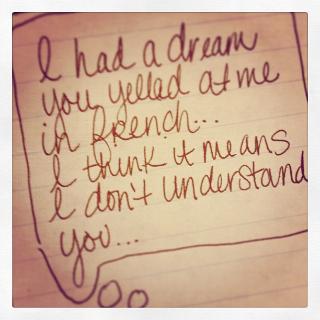 I had a dream
you yelled at me
in french...
I think it means
I don't understand
you...